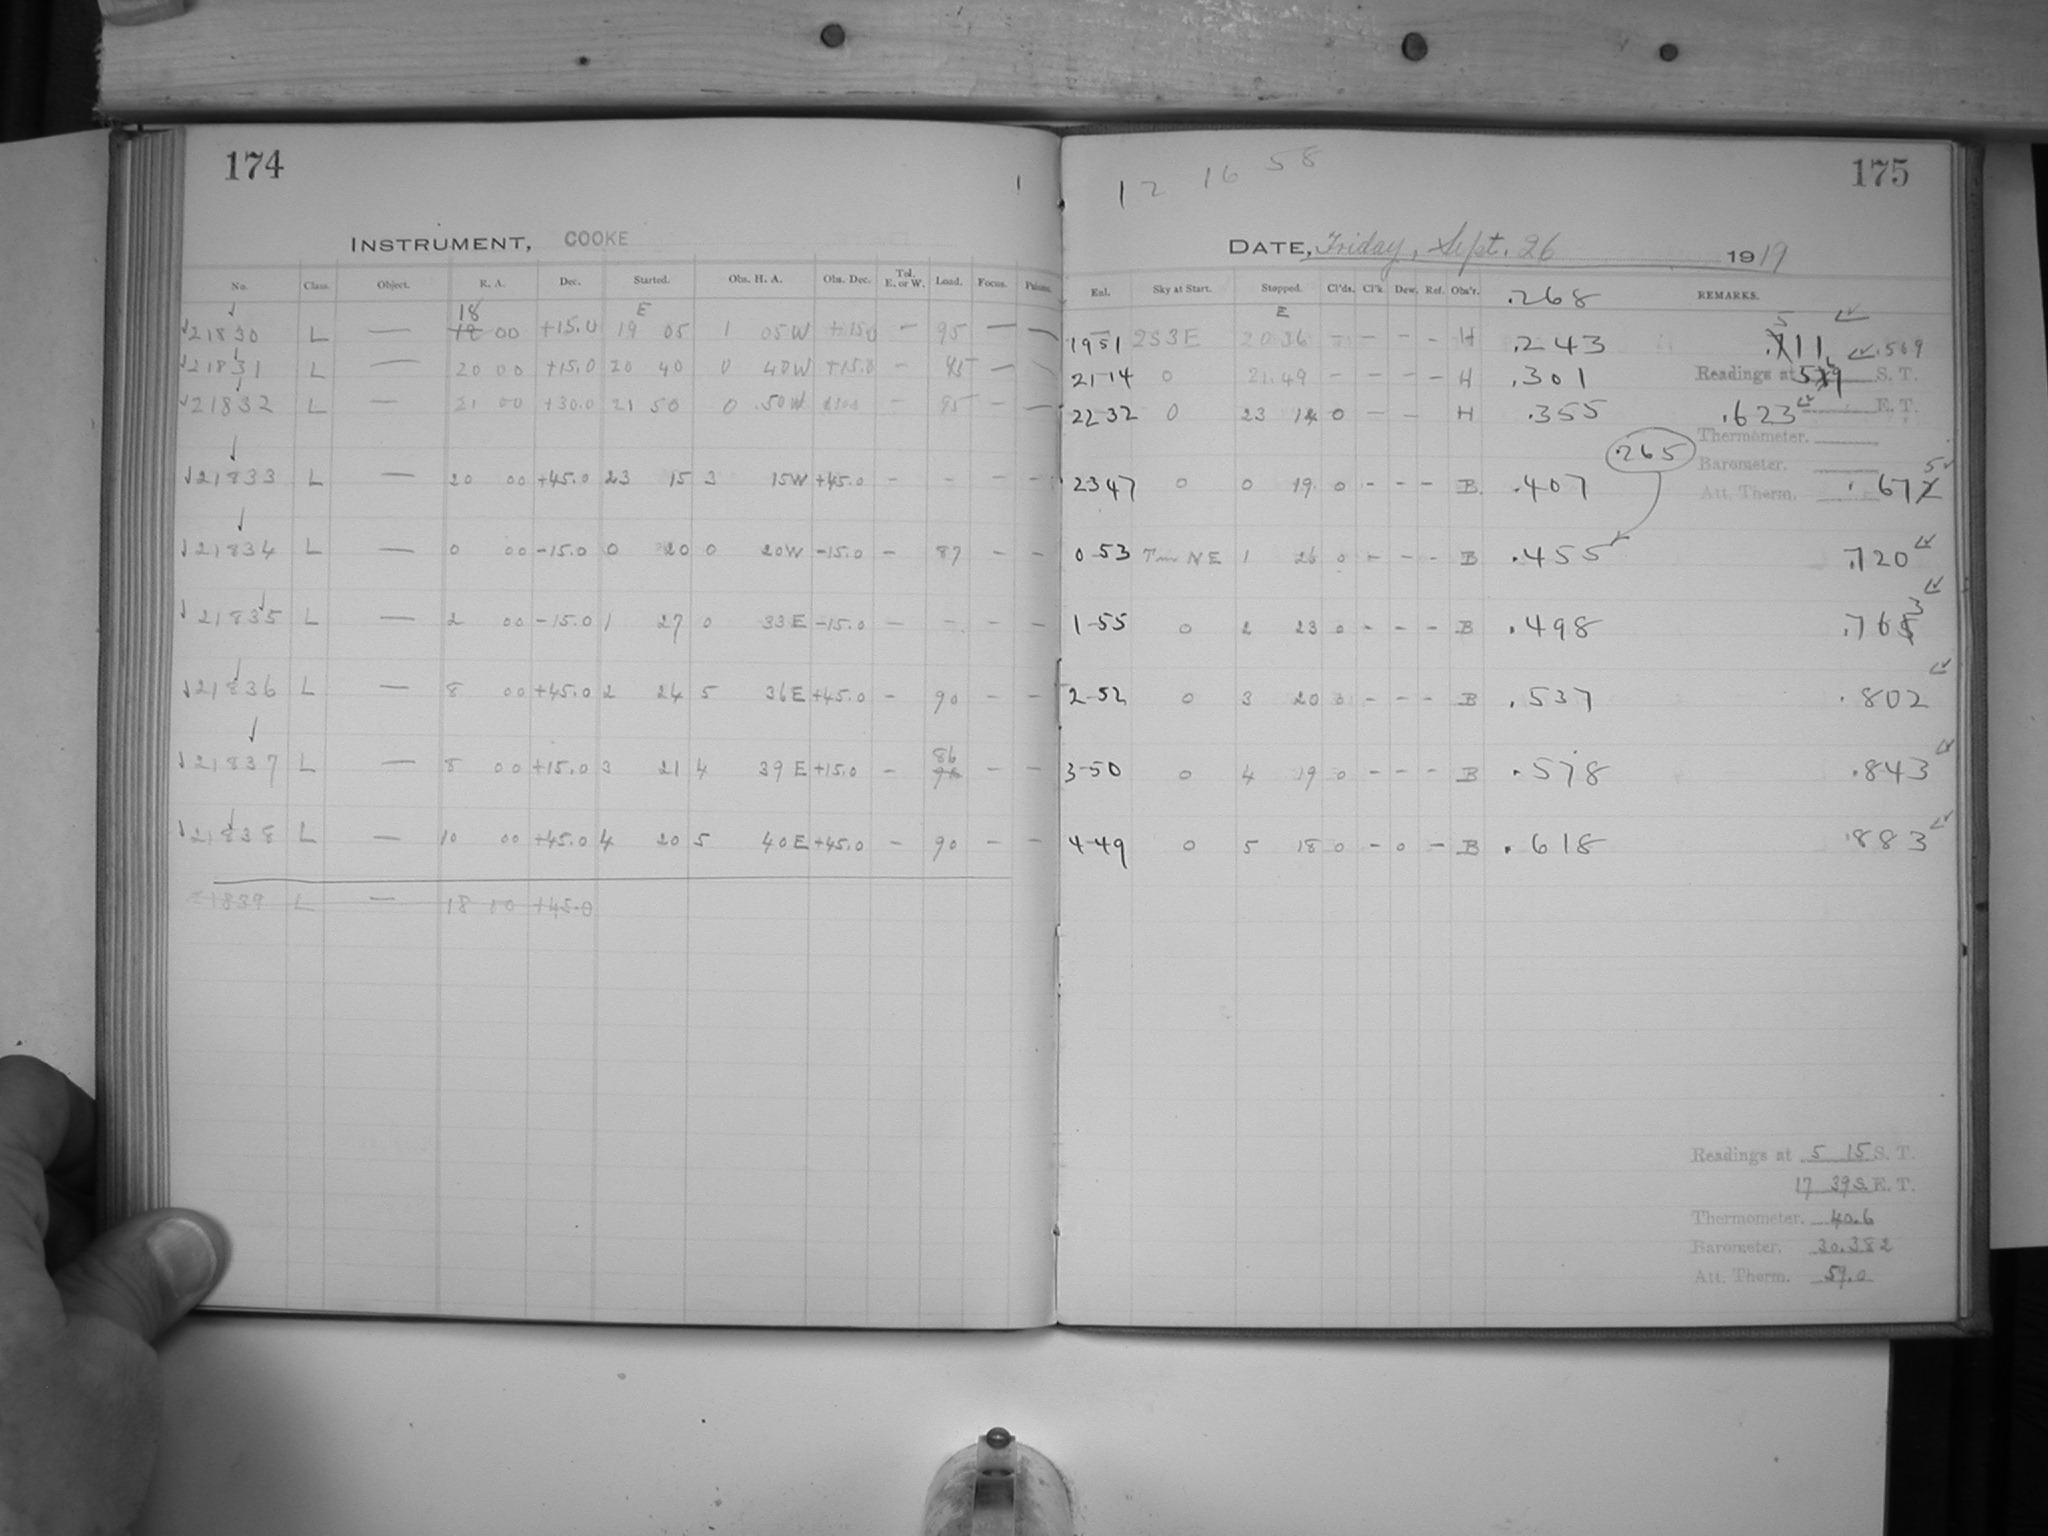 174
INSTRUMENT, COOKE
No. Class. Object. R. A. Dec. Started. Obs. H. A. Obs. Dec. Tel. E. or W. Load. Focus.
18 E
21830 L — 00 +15.0 19 05 1 05W +15.0 - 95 —
21831 L — 20 00 +15.0 20 40 0 40W +15.0 - 95 —
21832 L — 21 00 +30.0 21 50 0 50W - 95 — —
21833 L — 20 00 +45.0 23 15 3 15W +45.0 - - - -
21834 L — 0 00 -15.0 0 20 0 20W -15.0 - 87 - -
21835 L — 2 00 -15.0 1 27 0 33E -15.0 - - - -
21836 L — 8 00 +45.0 2 24 5 36E +45.0 - 90 - -
86
21837 L — 8 00 +15.0 3 21 4 39E +15.0 - - -
21838 L — 10 00 +45.0 4 20 5 40E +45.0 - 90 - -
21839 L — 18 00 +45.0
12 16 58
175
DATE, Friday, Sept. 26 1919
Enl. Sky at Start. Stopped. Cl'ds. Cl'k. Dew. Ref. Obs'r. .268 REMARKS.
E
1951 2S3E 20 36 - - - - H .243 .569
21-14 0 21.49 - - - - H .301 Readings at S. T.
22 32 0 23 0 - - H .355 .623 E. T.
Thermometer.
.265
Barometer.
2347 0 0 19 0 - - - B. .407 Att. Therm.
0-53 NE 1 26 0 - - - B .455 .720
1-55 0 2 23 0 - - - B .498 .763
2-52 0 3 20 0 - - - B .537 .802
3-50 0 4 19 0 - - - B .578 .843
4-49 0 5 18 0 - 0 - B .618 .883
Readings at 5 15 S. T.
17 39 S. E. T.
Thermometer. 40.6
Barometer. 30.382
Att. Therm. 59.0